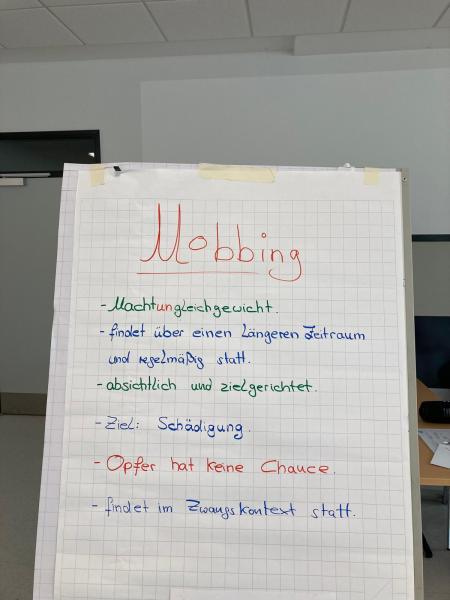 Mobbing
- Machtungleichgewicht.
- findet über einen Längeren Zeitraum
und regelmäßig statt.
- absichtlich und zielgerichtet.
- Ziel: Schädigung.
- Opfer hat keine Chance.
- findet im Zwangskontext statt.